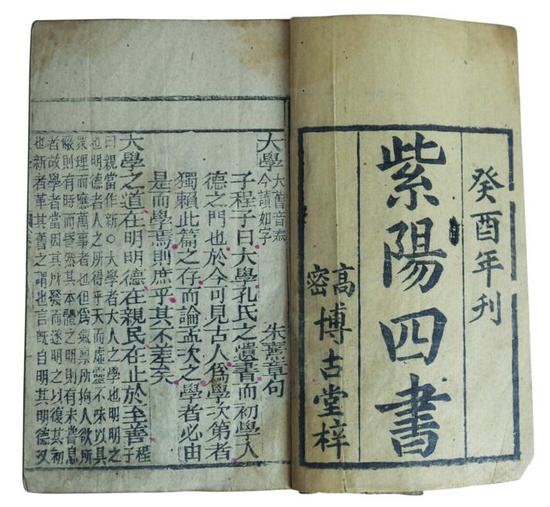 癸酉年刊
紫陽四書
高密博古堂梓
大學 大舊音泰
今讀如字
朱熹章句
子程子曰大學孔氏之遺書而初學入
德之門也於今可見古人爲學次第者
獨賴此篇之存而論孟次之學者必由
是而學焉則庶乎其不差矣
大學之道在明明德在親民在止於至善 程子
曰親當作新○大學者大人之學也明明之
也明德者人之所得乎天而虛靈不昧以具
衆理而應萬事者也但爲氣稟所拘人欲所
蔽則有時而昏然其本體之明則有未嘗息
者故學者當因其所發而遂明之以復其初
也新者革其舊之謂也言既自明其明德又